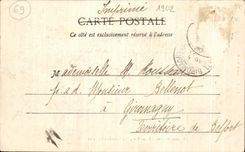 69
Imprimé 1902
CARTE POSTALE
Ce côté est exclusivement réservé à l'adresse
Mademoiselle M.
p.a.d. Monsieur Bellenot
à Giromagny
Territoire de Belfort